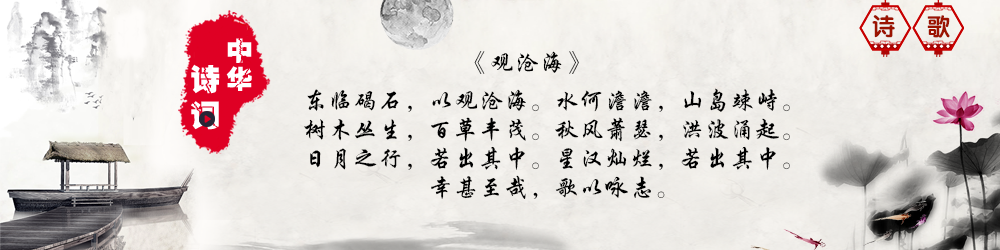 中华
诗词
诗歌
《观沧海》
东临碣石，以观沧海。水何澹澹，山岛竦峙。
树木丛生，百草丰茂。秋风萧瑟，洪波涌起。
日月之行，若出其中。星汉灿烂，若出其中。
幸甚至哉，歌以咏志。